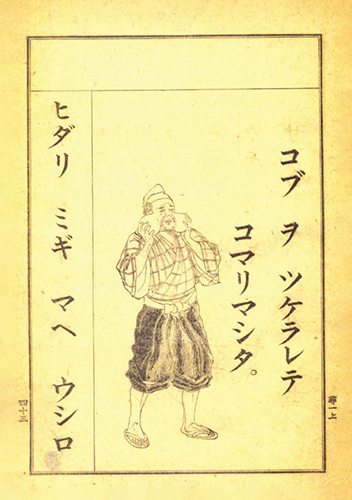 コブ ヲ ツケラレテ
コマリマシタ。
ヒダリ ミギ マヘ ウシロ
尋一上
四十三